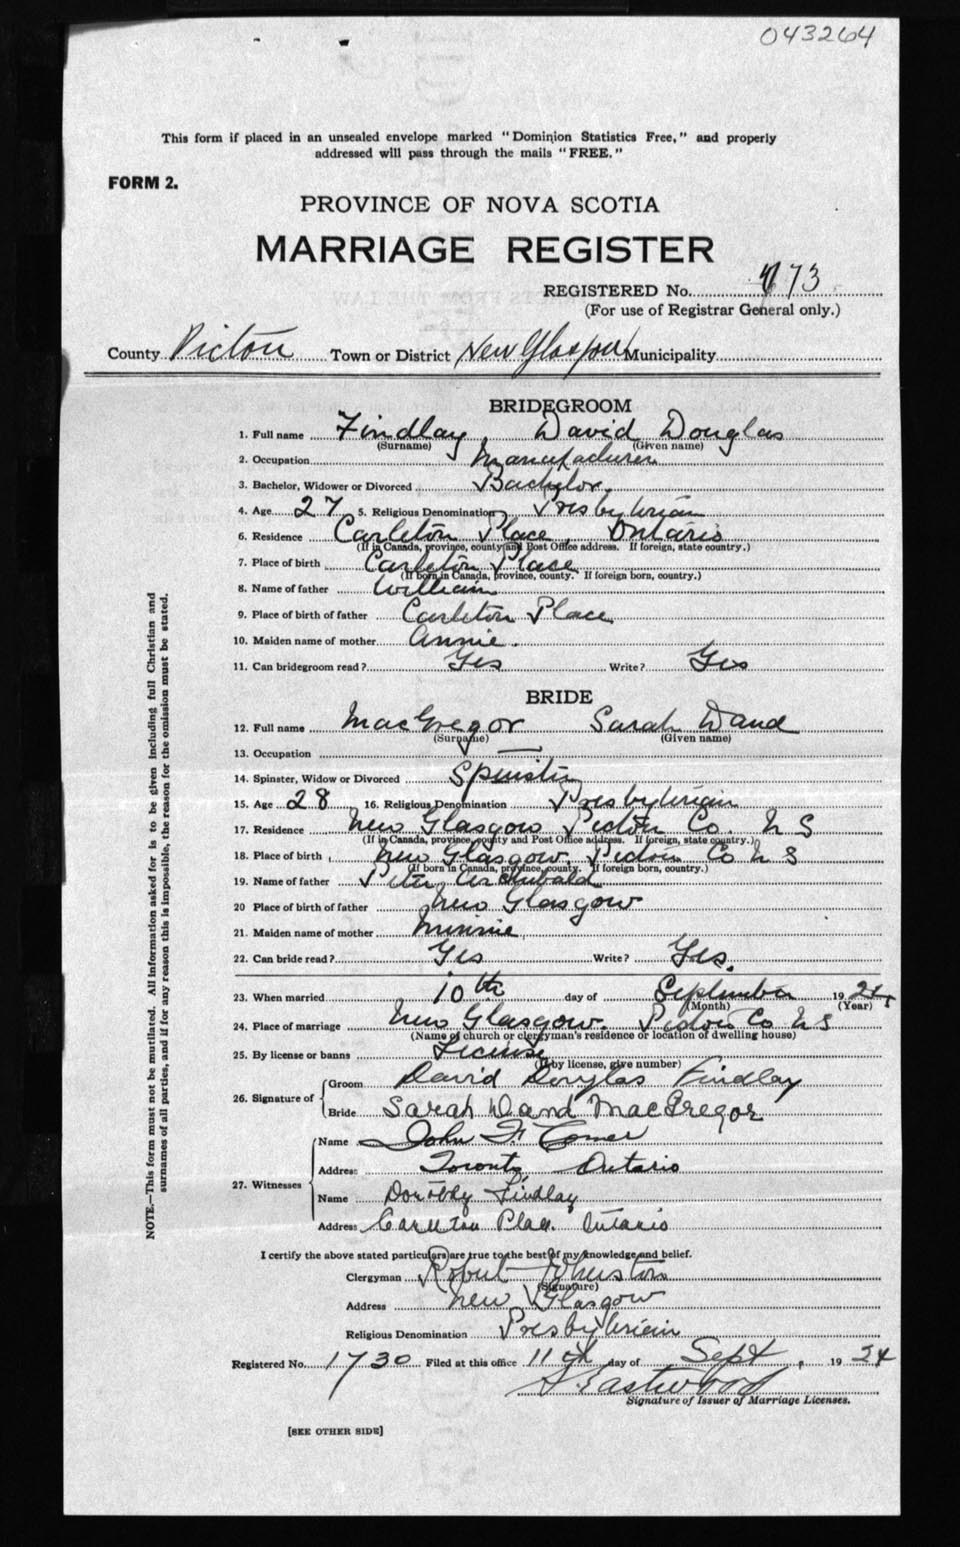 043264
This form if placed in an unsealed envelope marked "Dominion Statistics Free," and properly
addressed will pass through the mails "FREE."
FORM 2.
PROVINCE OF NOVA SCOTIA
MARRIAGE REGISTER
REGISTERED No. 173
(For use of Registrar General only.)
County Pictou Town or District New Glasgow Municipality
BRIDEGROOM
1. Full name Findlay David Douglas
(Surname) (Given name)
2. Occupation Manufacturer
3. Bachelor, Widower or Divorced Bachelor
4. Age 27 5. Religious Denomination Presbyterian
6. Residence Carleton Place, Ontario
(If in Canada, province, county and Post Office address. If foreign, state country.)
7. Place of birth Carleton Place
(If born in Canada, province, county. If foreign born, country.)
8. Name of father William
9. Place of birth of father Carleton Place
10. Maiden name of mother Annie.
11. Can bridegroom read? Yes Write? Yes
BRIDE
12. Full name MacGregor Sarah Dand
(Surname) (Given name)
13. Occupation —
14. Spinster, Widow or Divorced Spinster
15. Age 28 16. Religious Denomination Presbyterian
17. Residence New Glasgow Pictou Co. N S
(If in Canada, province, county and Post Office address. If foreign, state country.)
18. Place of birth New Glasgow Pictou Co N S
(If born in Canada, province, county. If foreign born, country.)
19. Name of father Peter Archibald
20 Place of birth of father New Glasgow
21. Maiden name of mother Minnie
22. Can bride read? Yes Write? Yes.
23. When married 10th day of September 1924
(Month) (Year)
24. Place of marriage New Glasgow. Pictou Co N S
(Name of church or clergyman's residence or location of dwelling house)
25. By license or banns License
(If by license, give number)
26. Signature of Groom David Douglas Findlay
Bride Sarah Dand MacGregor
27. Witnesses Name John F. Comer
Address Toronto, Ontario
Name Dorothy Findlay
Address Carleton Place. Ontario
I certify the above stated particulars are true to the best of my knowledge and belief.
Clergyman Robert Johnston
(Signature)
Address New Glasgow
Religious Denomination Presbyterian
Registered No. 1730 Filed at this office 11th day of Sept, 1924
Eastwood
Signature of Issuer of Marriage Licenses.
[SEE OTHER SIDE]
NOTE.—This form must not be mutilated. All information asked for is to be given including full Christian and
surnames of all parties, and if for any reason this is impossible, the reason for the omission must be stated.